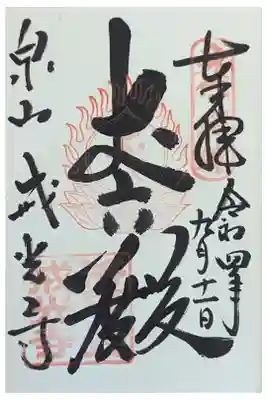 奉拝
令和四年
九月十一日
丈六殿
泉山 戒光寺